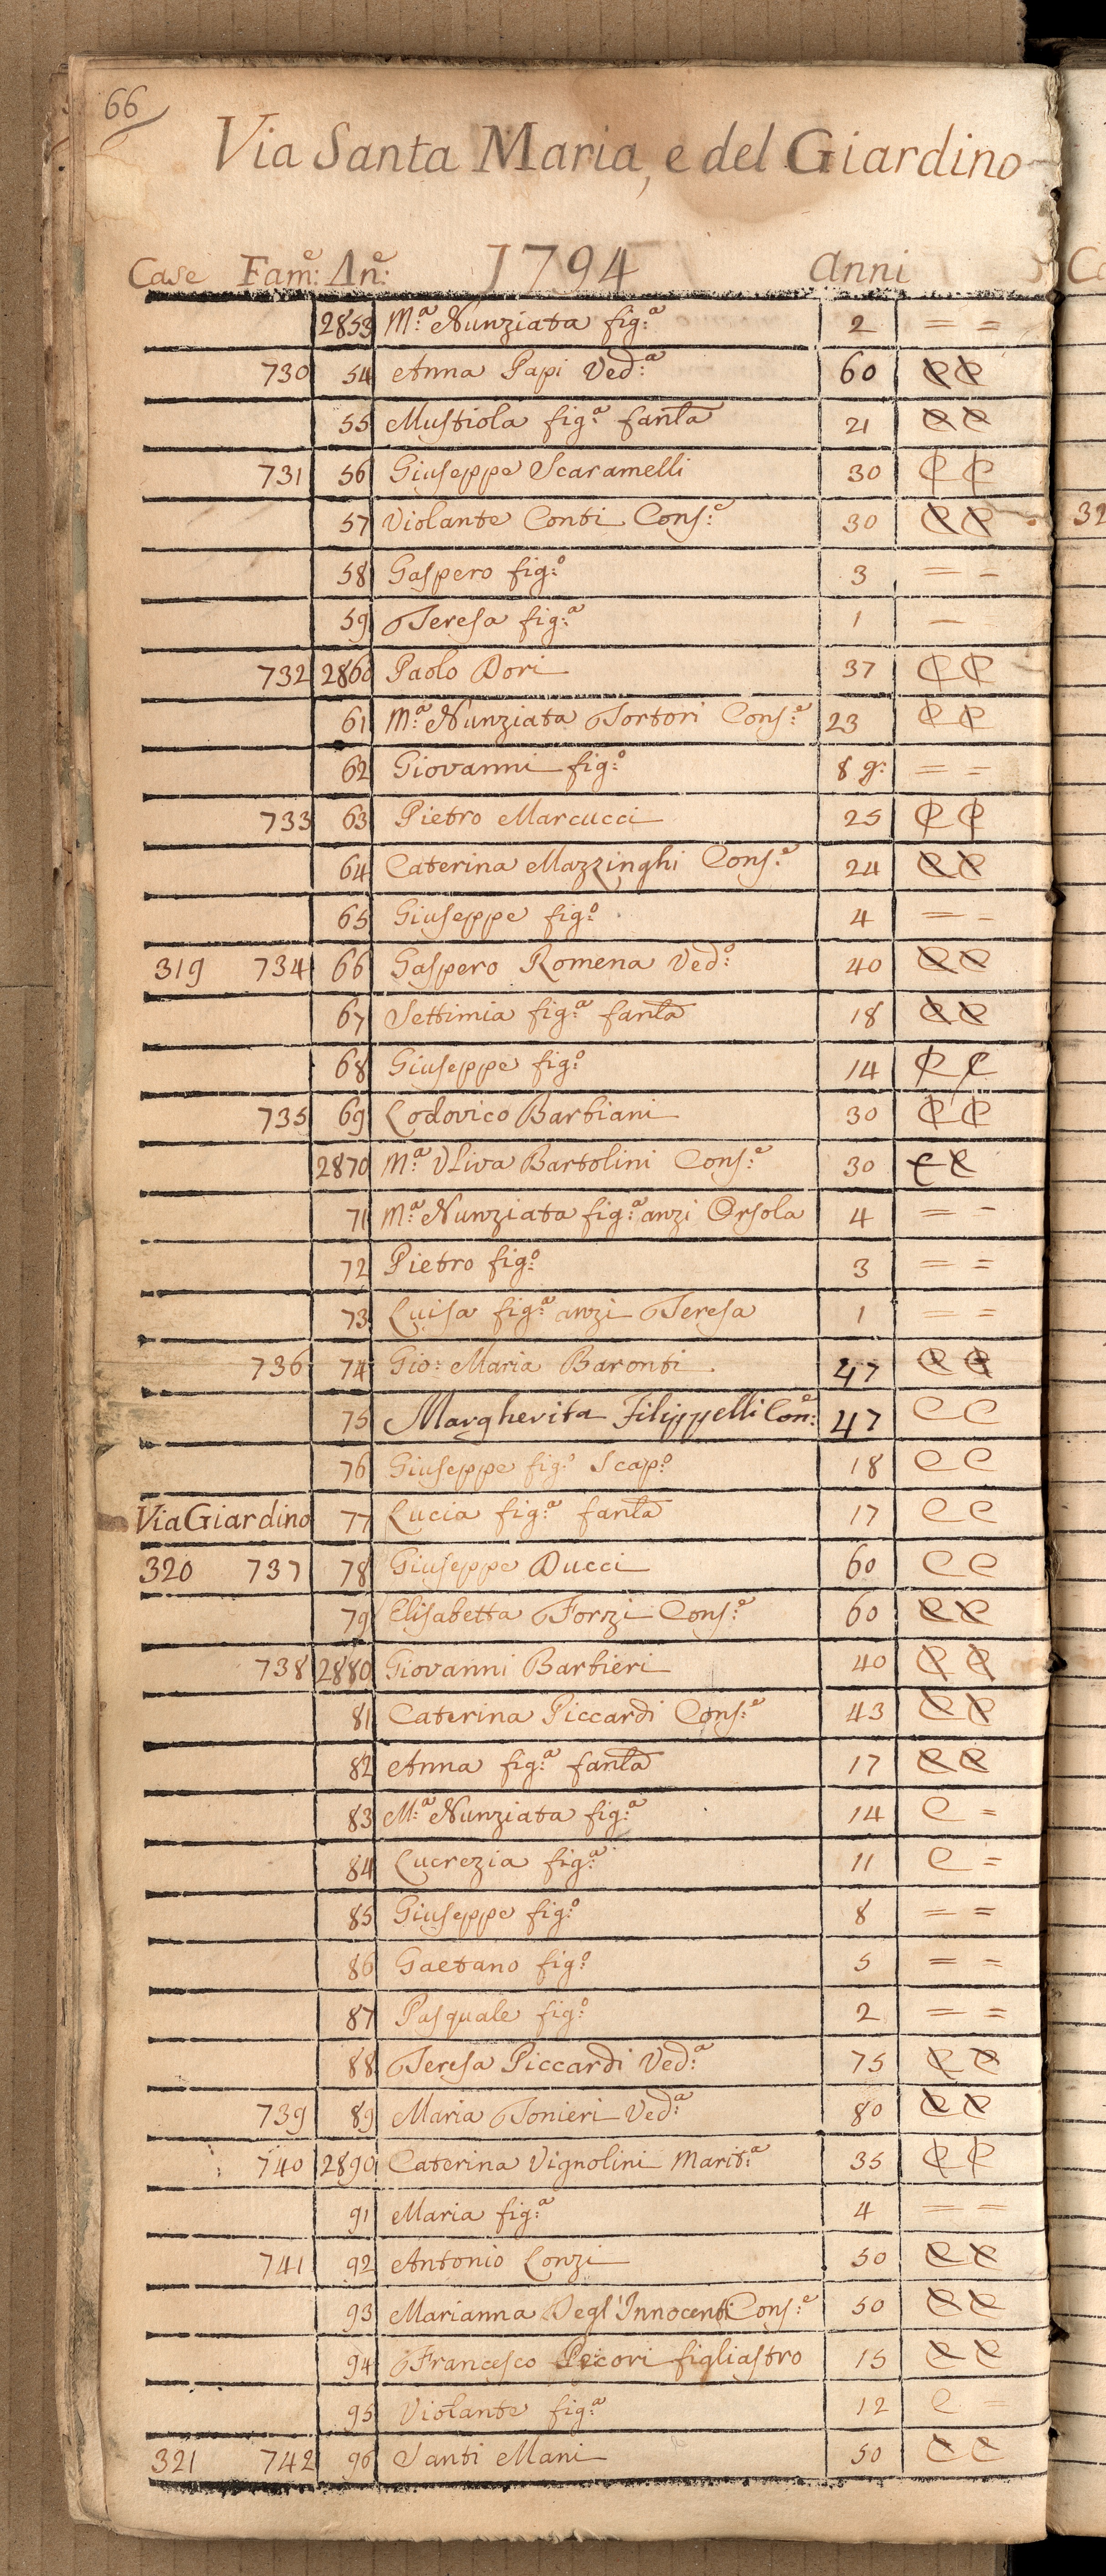 66
Via Santa Maria, e del Giardino
Case Fam:e An:e 1794 Anni
2853 M:a Nunziata fig:a 2 = =
730 54 Anna Papi Ved:a 60 C C
55 Mustiola fig:a fanla 21 C C
731 56 Giuseppe Scaramelli 30 C C
57 Violante Conti Cons:e 30 C C
58 Gaspero fig:o 3 = =
59 Teresa fig:a 1 =
732 2860 Paolo Dori 37 C C
61 M:a Nunziata Tortori Cons:e 23 C C
62 Giovanni fig:o 8 g: = =
733 63 Pietro Marcucci 25 C C
64 Caterina Mazzinghi Cons:e 24 C C
65 Giuseppe fig:o 4 = =
319 734 66 Gaspero Romena Ved:o 40 C C
67 Settimia fig:a fanla 18 C C
68 Giuseppe fig:o 14 C C
735 69 Lodovico Barbiani 30 C C
2870 M:a Uliva Bartolini Cons:e 30 C C
71 M:a Nunziata fig:a anzi Orsola 4 = =
72 Pietro fig:o 3 = =
73 Luisa fig:a anzi Teresa 1 = =
736 74 Gio: Maria Baronti 47 C C
75 Margherita Filippelli Con:e 47 C C
76 Giuseppe fig:o Scap:o 18 C C
Via Giardino 77 Lucia fig:a fanla 17 C C
320 737 78 Giuseppe Ducci 60 C C
79 Elisabetta Forzi Cons:e 60 C C
738 2880 Giovanni Barbieri 40 C C
81 Caterina Piccardi Cons:e 43 C C
82 Anna fig:a fanla 17 C C
83 M:a Nunziata fig:a 14 C =
84 Lucrezia fig:a 11 C =
85 Giuseppe fig:o 8 = =
86 Gaetano fig:o 5 = =
87 Pasquale fig:o 2 = =
88 Teresa Piccardi Ved:a 75 C C
739 89 Maria Tonieri Ved:a 80 C C
740 2890 Caterina Vignolini Marit:a 35 C C
91 Maria fig:a 4 = =
741 92 Antonio Lonzi 50 C C
93 Marianna Degl'Innocenti Cons:e 50 C C
94 Francesco Pecori figliastro 15 C C
95 Violante fig:a 12 C =
321 742 96 Santi Mani 50 C C
32